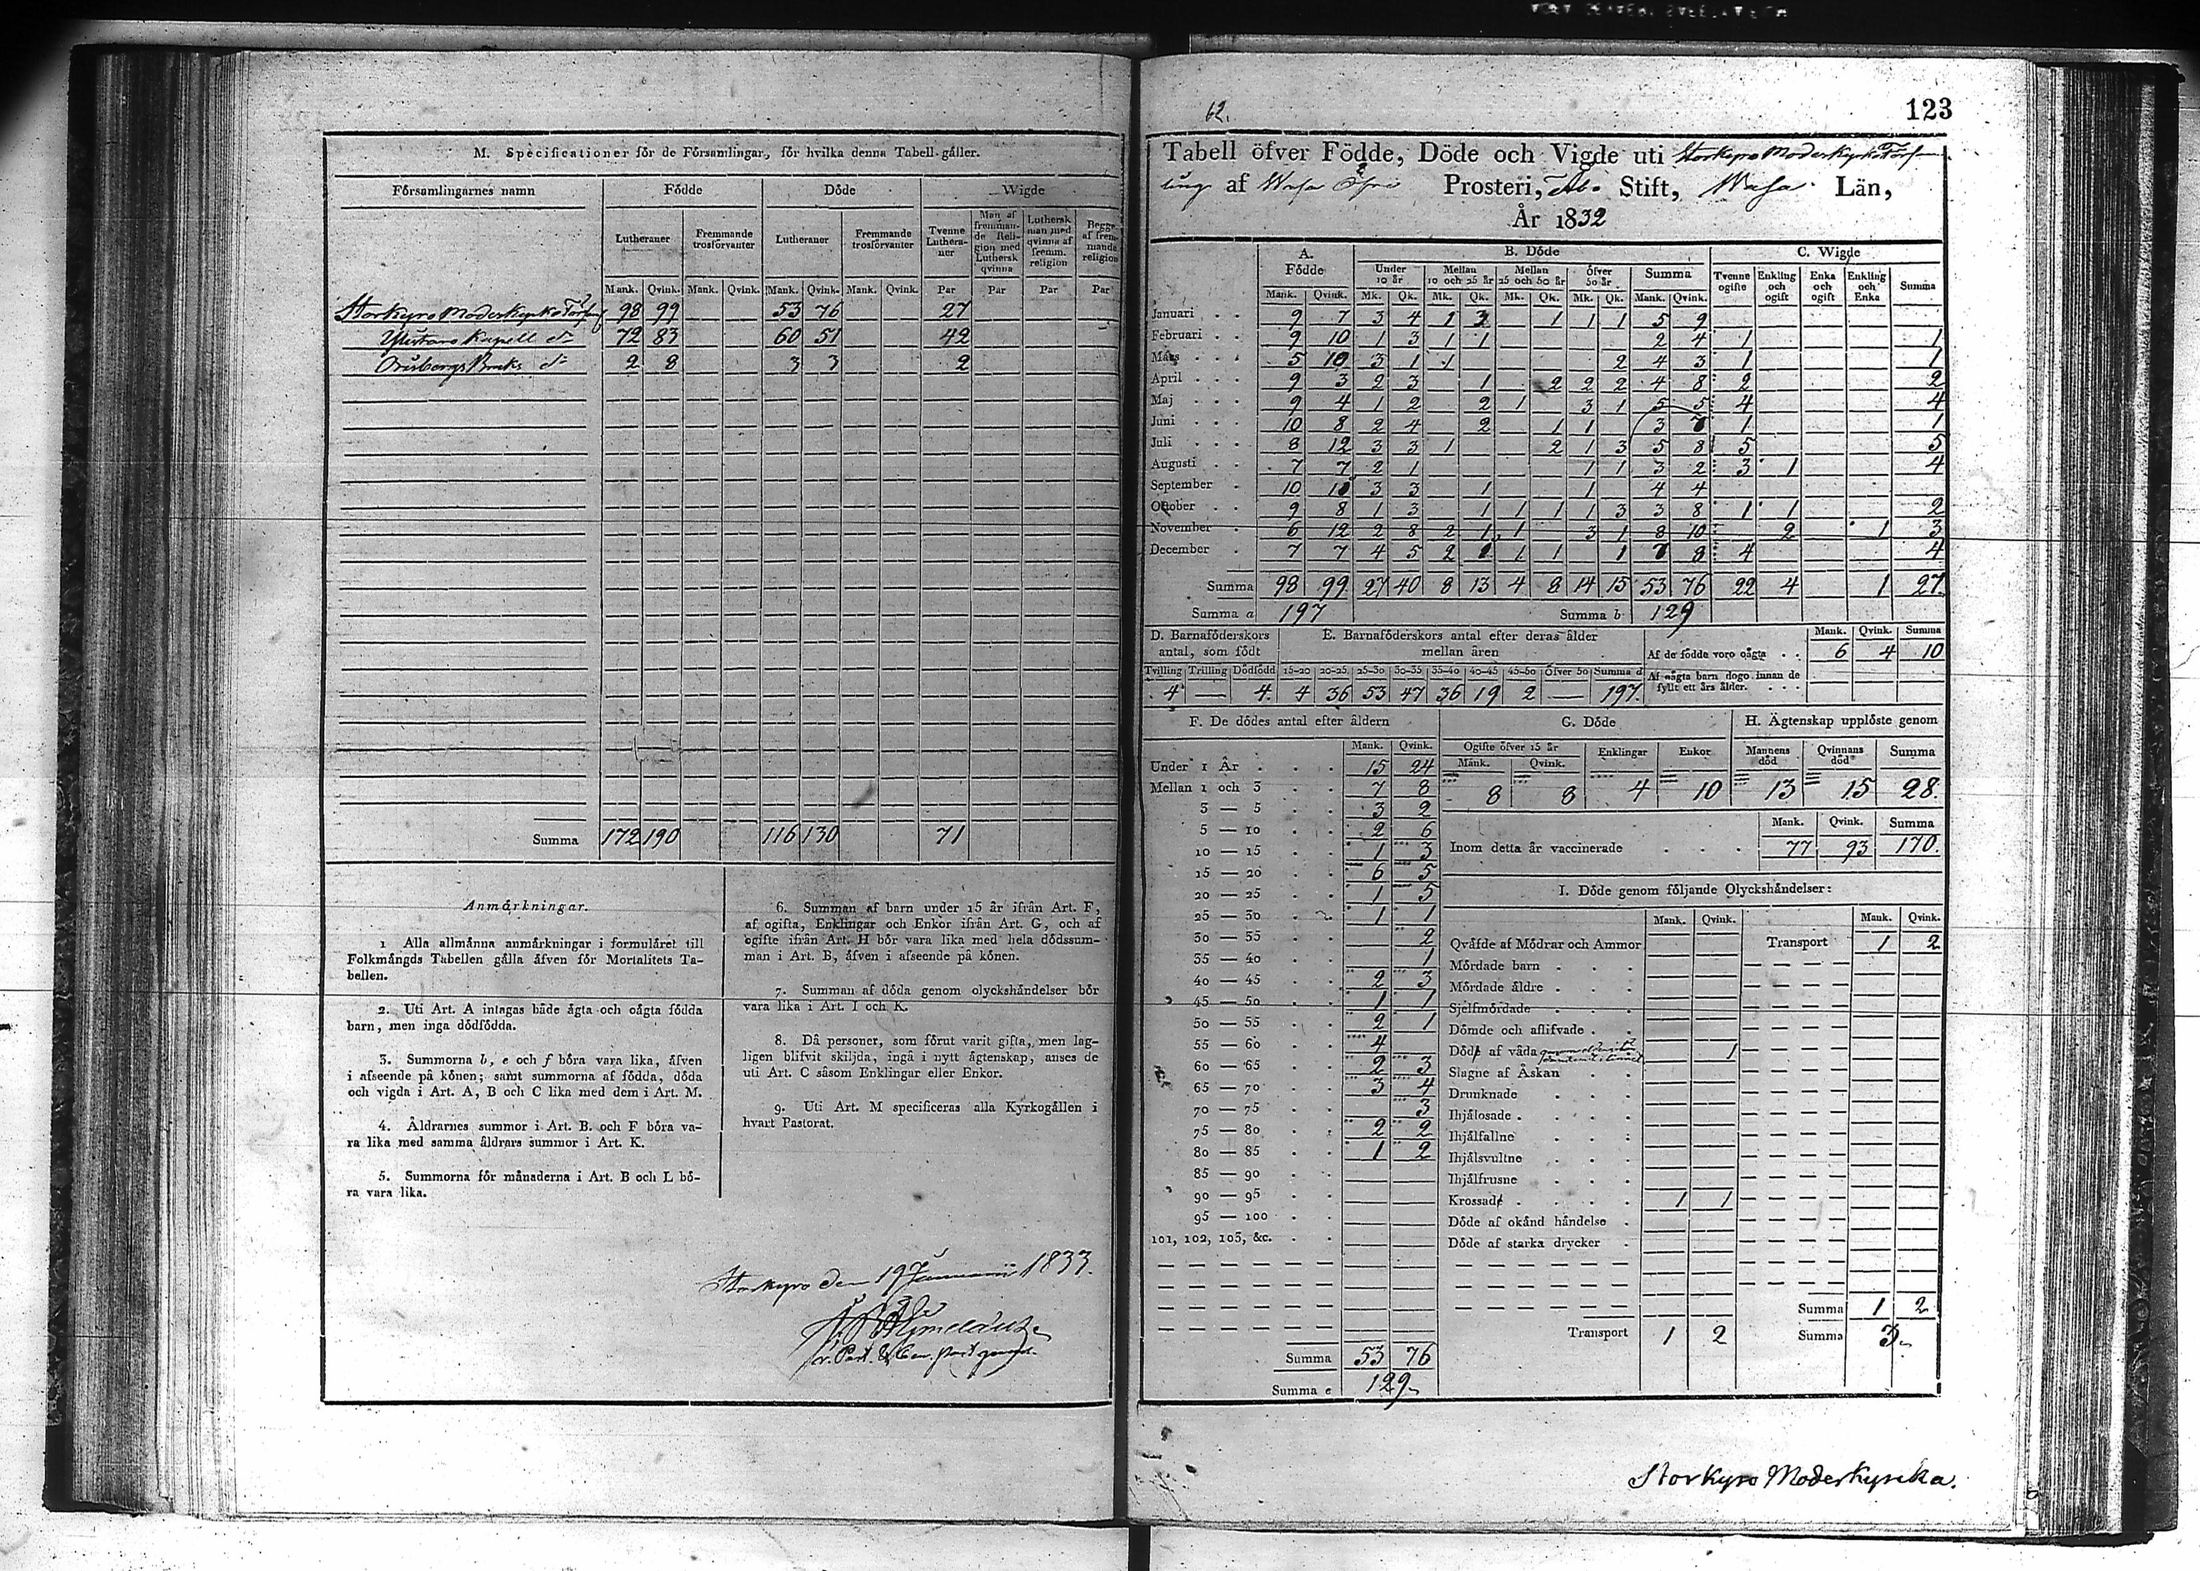 M. Specificationer för de Församlingar, för hvilka denna Tabell gäller.
Församlingarnes namn Födde Döde Wigde
Lutheraner Fremmande trosförvanter Lutheraner Fremmande trosförvanter Tvenne Lutheraner Man af fremmande Religion med Luthersk qvinna Luthersk man med qvinna af fremm. religion Begge af fremmande religion
Mank. Qvink. Mank. Qvink. Mank. Qvink. Mank. Qvink. Par Par Par Par
Storkyro Moderkyrko 98 99 53 76 27
Kapell do 72 83 60 51 42
Orisbergs Bruks do 2 8 3 3 2
Summa 172 190 116 130 71
Anmärkningar.
1 Alla allmänna anmärkningar i formuläret till
Folkmängds Tabellen gälla äfven för Mortalitets Ta-
bellen.
2. Uti Art. A intagas både ägta och oägta födda
barn, men inga dödfödda.
3. Summorna b, e och f böra vara lika, äfven
i afseende på könen; samt summorna af födda, döda
och vigda i Art. A, B och C lika med dem i Art. M.
4. Åldrarnes summor i Art. B. och F böra va-
ra lika med samma åldrars summor i Art. K.
5. Summorna för månaderna i Art. B och L bö-
ra vara lika.
6. Summan af barn under 15 år ifrån Art. F,
af ogifta, Enklingar och Enkor ifrån Art. G, och af
gifte ifrån Art. H bör vara lika med hela dödssum-
man i Art. B, äfven i afseende på könen.
7. Summan af döda genom olyckshändelser bör
vara lika i Art. I och K.
8. Då personer, som förut varit gifta, men lag-
ligen blifvit skiljda, ingå i nytt ägtenskap, anses de
uti Art. C såsom Enklingar eller Enkor.
9. Uti Art. M specificeras alla Kyrkogällen i
hvart Pastorat.
Storkyro den 19 Januarii 1833.
62.
123
Tabell öfver Födde, Döde och Vigde uti Storkyro Moderkyrko Försam-
ling af Wasa Prosteri, Åbo Stift, Wasa Län,
År 1832
A. Födde B. Döde C. Wigde
Under 10 år Mellan 10 och 25 år Mellan 25 och 50 år Öfver 50 år Summa Tvenne ogifte Enkling och ogift Enka och ogift Enkling och Enka Summa
Mank. Qvink. Mk. Qk. Mk. Qk. Mk. Qk. Mk. Qk. Mank. Qvink.
Januari 9 7 3 4 1 3 1 1 1 5 9
Februari 9 10 1 3 1 1 2 4 1 1
Mars 5 10 3 1 1 2 4 3 1 1
April 9 3 2 3 1 2 2 2 4 8 2 2
Maj 9 4 1 2 2 1 3 1 5 5 4 4
Juni 10 8 2 4 2 1 1 3 7 1 1
Juli 8 12 3 3 1 2 1 3 5 8 5 5
Augusti 7 7 2 1 1 1 3 2 3 1 4
September 10 11 3 3 1 1 4 4
Oktober 9 8 1 3 1 1 1 1 3 3 8 1 1 2
November 6 12 2 8 2 1 1 3 1 8 10 2 1 3
December 7 7 4 5 2 1 1 1 1 7 8 4 4
Summa 98 99 27 40 8 13 4 8 14 15 53 76 22 4 1 27
Summa a 197 Summa b 129
D. Barnaföderskors antal, som födt
Tvilling Trilling Dödfödd
4 — 4.
E. Barnaföderskors antal efter deras ålder mellan åren
15-20 20-25 25-30 30-35 35-40 40-45 45-50 Öfver 50 Summa d
4 36 53 47 36 19 2 — 197.
Mank. Qvink. Summa
Af de födde voro oägta . . 6 4 10
Af oägta barn dogo innan de
fyllt ett års ålder. . . .
F. De dödes antal efter åldern
Mank. Qvink.
Under 1 År 15 24
Mellan 1 och 3 7 8
3 — 5 3 2
5 — 10 2 6
10 — 15 1 3
15 — 20 6 5
20 — 25 1 5
25 — 30 1 1
30 — 35 2
35 — 40 1
40 — 45 2 3
45 — 50 1 1
50 — 55 2 1
55 — 60 4
60 — 65 2 3
65 — 70 3 4
70 — 75 3
75 — 80 2 2
80 — 85 1 2
85 — 90
90 — 95
95 — 100
101, 102, 103, &c.
Summa 53 76
Summa e 129
G. Döde
Ogifte öfver 15 år Enklingar Enkor
Mank. Qvink.
8 8 4 10
H. Ägtenskap upplöste genom
Mannens död Qvinnans död Summa
13 15 28.
Mank. Qvink. Summa
Inom detta år vaccinerade 77 93 170.
I. Döde genom följande Olyckshändelser:
Mank. Qvink. Mank. Qvink.
Qväfde af Mödrar och Ammor Transport 1 2
Mördade barn
Mördade äldre
Sjelfmördade
Dömde och aflifvade
Död af våda 1
Slagne af Åskan
Drunknade
Ihjälosade
Ihjälfallne
Ihjälsvultne
Ihjälfrusne
Krossad 1 1
Döde af okänd händelse
Döde af starka drycker
Summa 1 2
Transport 1 2 Summa 3.
Storkyro Moderkyrcka.